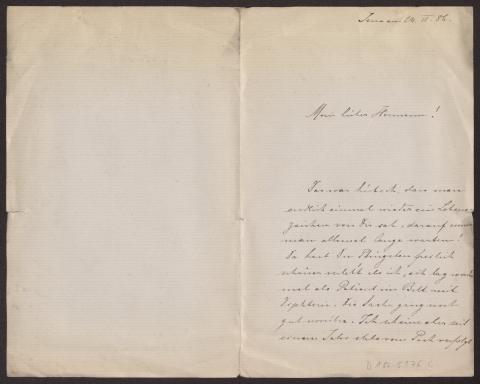 Jena am 24. VI. 86.
Mein lieber Hermann!
Das war hübsch, dass man
endlich einmal wieder ein Lebens-
zeichen von Dir sah, darauf muss
man allemal lange warten!
Da hast Du Pfingsten freilich
schöner erlebt als ich, ich lag
mal als Patient im Bett mit
Diphterie. Die Sache ging noch
gut vorüber. Ich scheine aber seit
einem Jahr stets vom Pech verfolgt